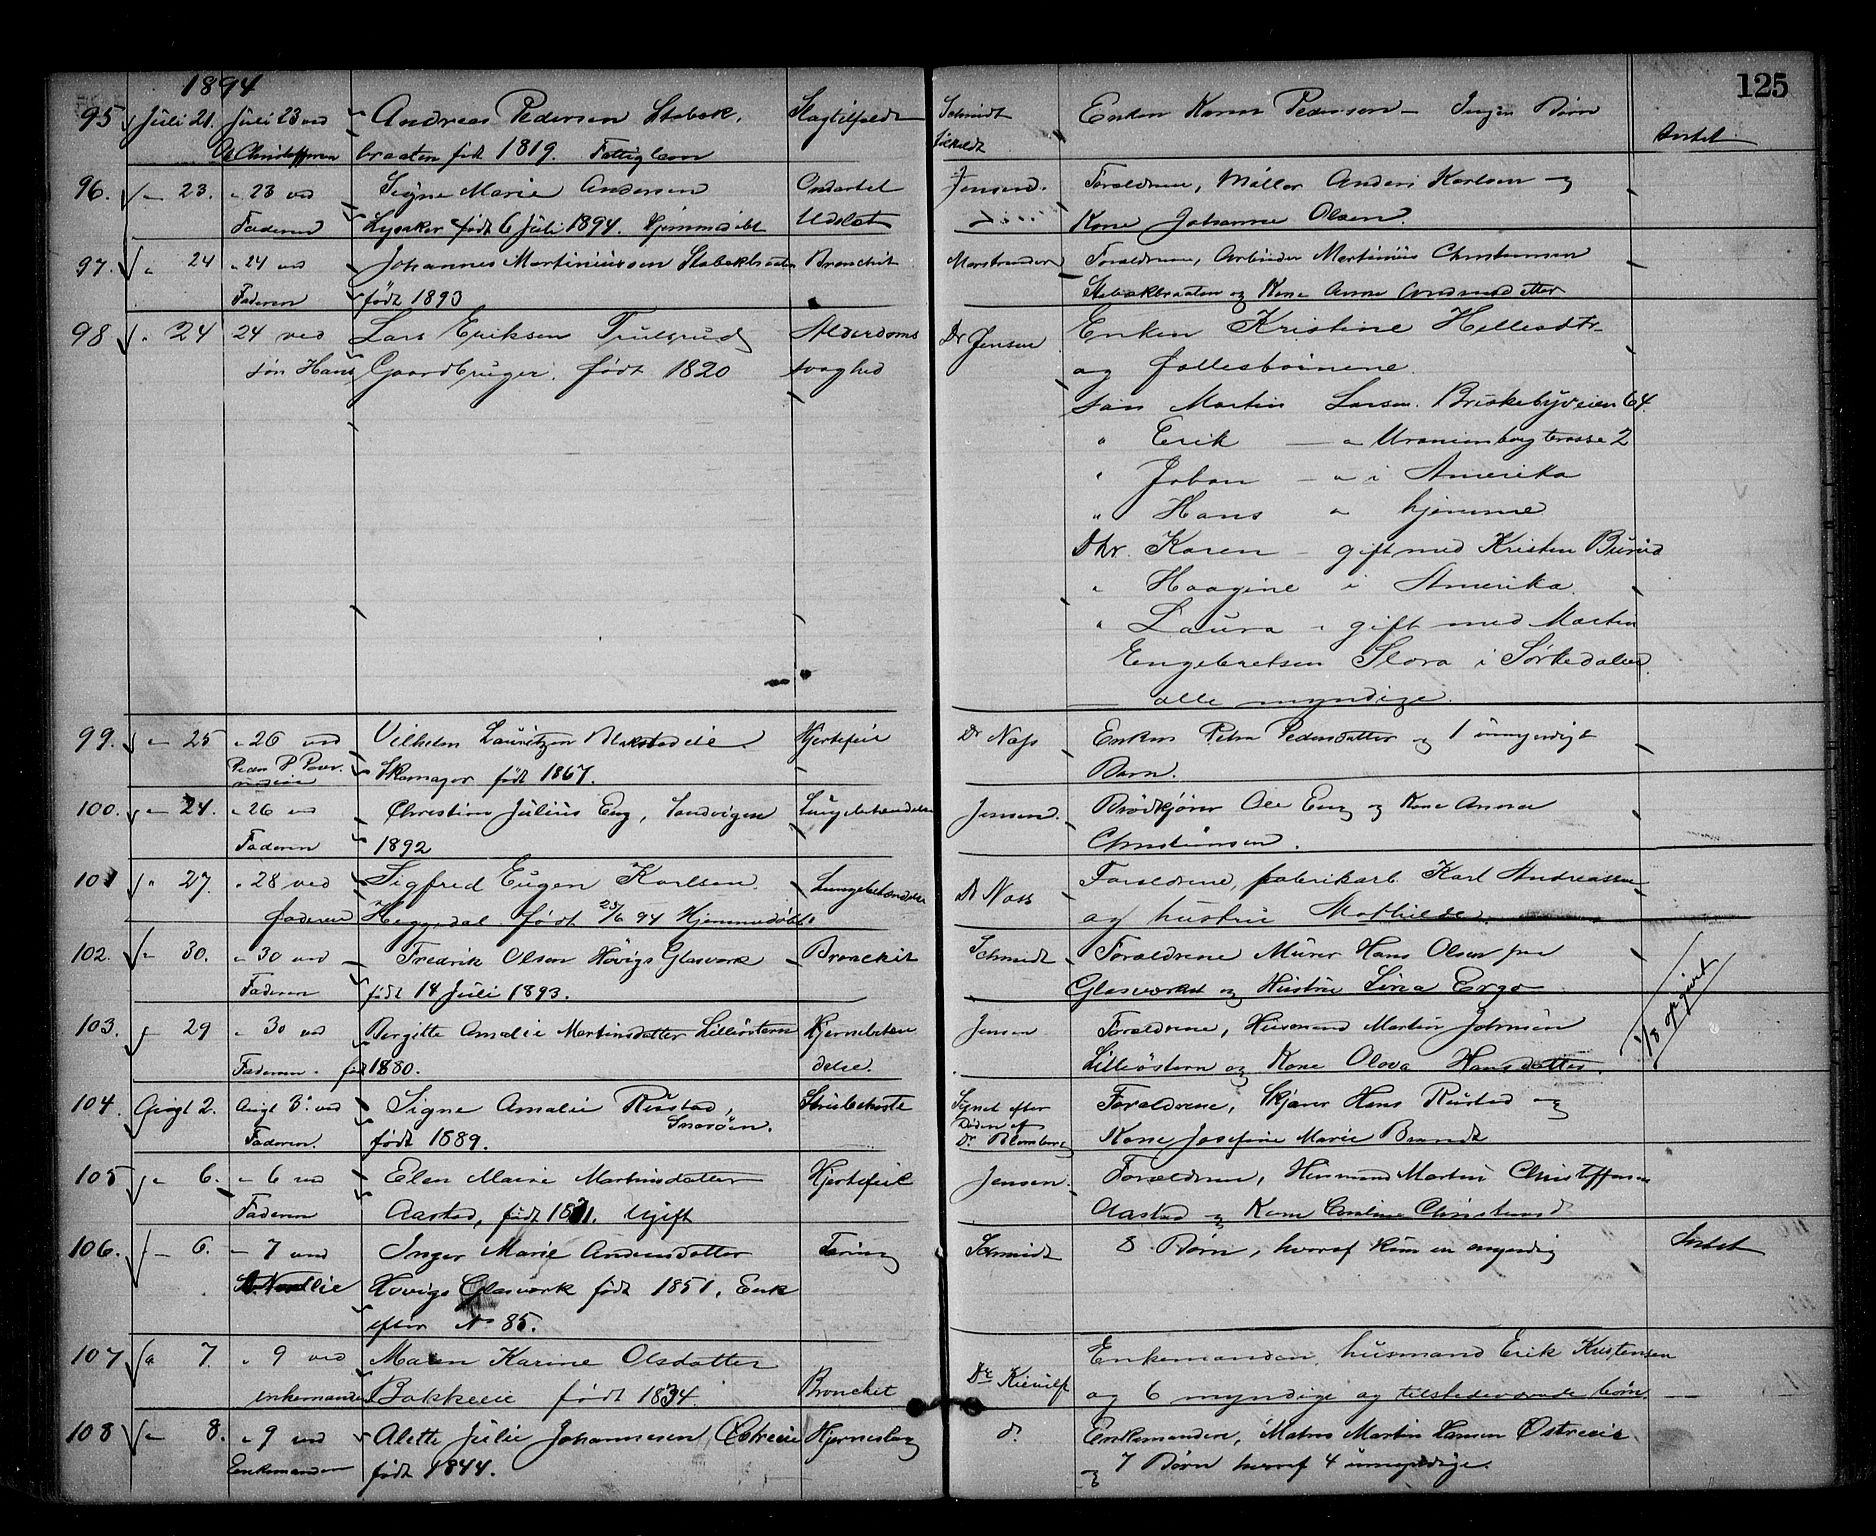 1894
125
95 Juli 21. Juli 23 ved Andreas Pedersen Stabæk. Slagtilfælde Schmidt Enken Karen Pedersen — Ingen Børn
braaten født 1819. Fattiglem Intet
96. " 23. " 23 ved Signe Marie Andersen Jensen. Forældrene, Møller Anders Karlsen og
Faderen Lysaker født 6 Juli 1894. Hjemmedøbt Udslæt Kone Johanne Olsen.
97. " 24 " 24 ved Johannes Martiniussen Stabækbraaten Bronchit Forældrene, Arbeider Martinius Christensen
Faderen født 1893 Stabækbraaten og Kone Anne
98 " 24 24 ved Lars Eriksen Trulsrud Alderdoms Dr Jensen Enken Kristine Hellesdtr
søn Hans Gaardbruger. født 1820 svaghed og fællesbørnene.
Søn Martin Larsen. Briskebyveien 64.
" Erik — " Uranienborg terasse 2
" Johan — " i Amerika
" Hans " hjemme
Dtr. Karen — gift med Kristen
" Haagine i Amerika.
" Laura " gift med Martin
Engebretsen Slora i Sørkedalen
alle myndige.
99. " 25 " 26 ved Vilhelm Lauritzen Hjertefeil Dr Næss Enken Petra Pedersdatter og 1 umyndigt
Peder P Skomager født 1867. Barn.
100. " 24. " 26 ved Christian Julius Eng, Sandvigen Lungebetændelse Jensen. Brødkjører Ole Eng og Kone Anna
Faderen 1892 Christiansen.
101 " 27. " 28 ved Sigfred Eugen Karlsen. Lungebetændelse Dr Næss Forældrene, fabrikarb. Karl Andreassen
faderen Heggedal. født 25/6 94 Hjemmedøbt og hustru Mathilde.
102. " 30. " 30 ved Fredrik Olsen Høvigs Glasværk Bronchit Schmidt Forældrene Murer Hans Olsen paa
Faderen født 14 Juli 1893. Glasværket og Hustru Lovisa
103. " 29 " 30 ved Birgitte Amalie Martinsdatter Lilleøstern Hjernebetæn Jensen Forældrene, Husmand Martin Johnsen
Faderen. født 1880. delse. Lilleøstern og Kone Olava Hansdatter.
1/8 opgivet
104. Augt 2. Augt 3. ved Signe Amalie Rustad, Strubehoste Synet efter Forældrene, Skjærer Hans Rustad og
Snarøen. Døden af
Faderen. født 1889. Dr. Blomberg Kone Josefine Marie Brandt
105 " 6. " 6 ved Elen Marie Martinsdatter Hjertefeil Jensen. Forældrene, Husmand Martin Christoffersen
Faderen Aastad, født 1871. Ugift Aastad og Kone Caroline
106. " 6. " 7 ved Inger Marie Andersdatter Tæring Schmidt 8 Børn, hvoraf kun en myndig Intet
Høvigs Glasværk født 1851, Enke
efter No 85.
107 " 7. " 9 ved Maren Karine Olsdatter Enkemanden, husmand Erik Kristensen
enkemanden Bakkeeie født 1834. Bronchit Dr Kierulf og 6 myndige og tilstedeværende børn
108 " 8. " 9 ved Alette Julie Johannesen Østreeie Hjerneslag d. Enkemanden, Matros Martin Larsen Østreeie
Enkemanden født 1844. og 7 Børn hvoraf 4 umyndige.